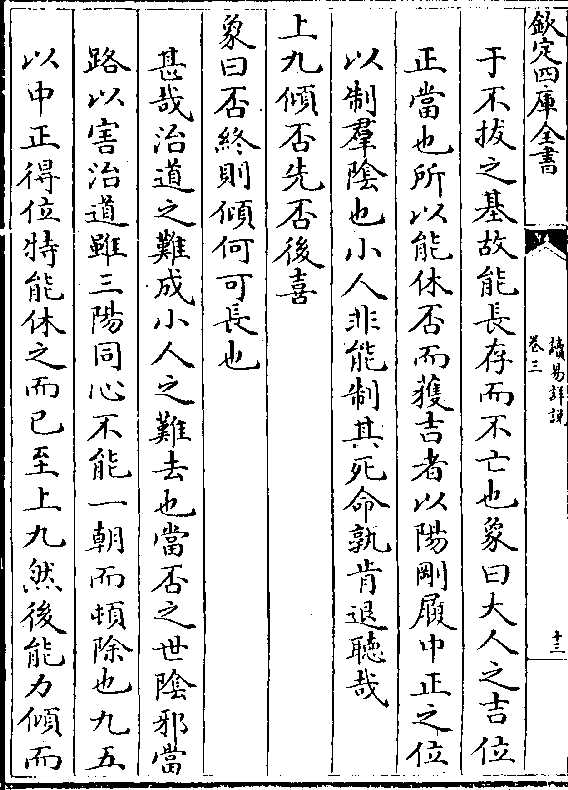 欽定四庫全書
讀易詳說
卷三
十三
于不拔之基故能長存而不亡也象曰大人之吉位
正當也所以能休否而獲吉者以陽剛履中正之位
以制羣陰也小人非能制其死命孰肯退聽哉
上九傾否先否後喜
象曰否終則傾何可長也
甚哉治道之難成小人之難去也當否之世陰邪當
路以害治道雖三陽同心不能一朝而頓除也九五
以中正得位特能休之而已至上九然後能力傾而